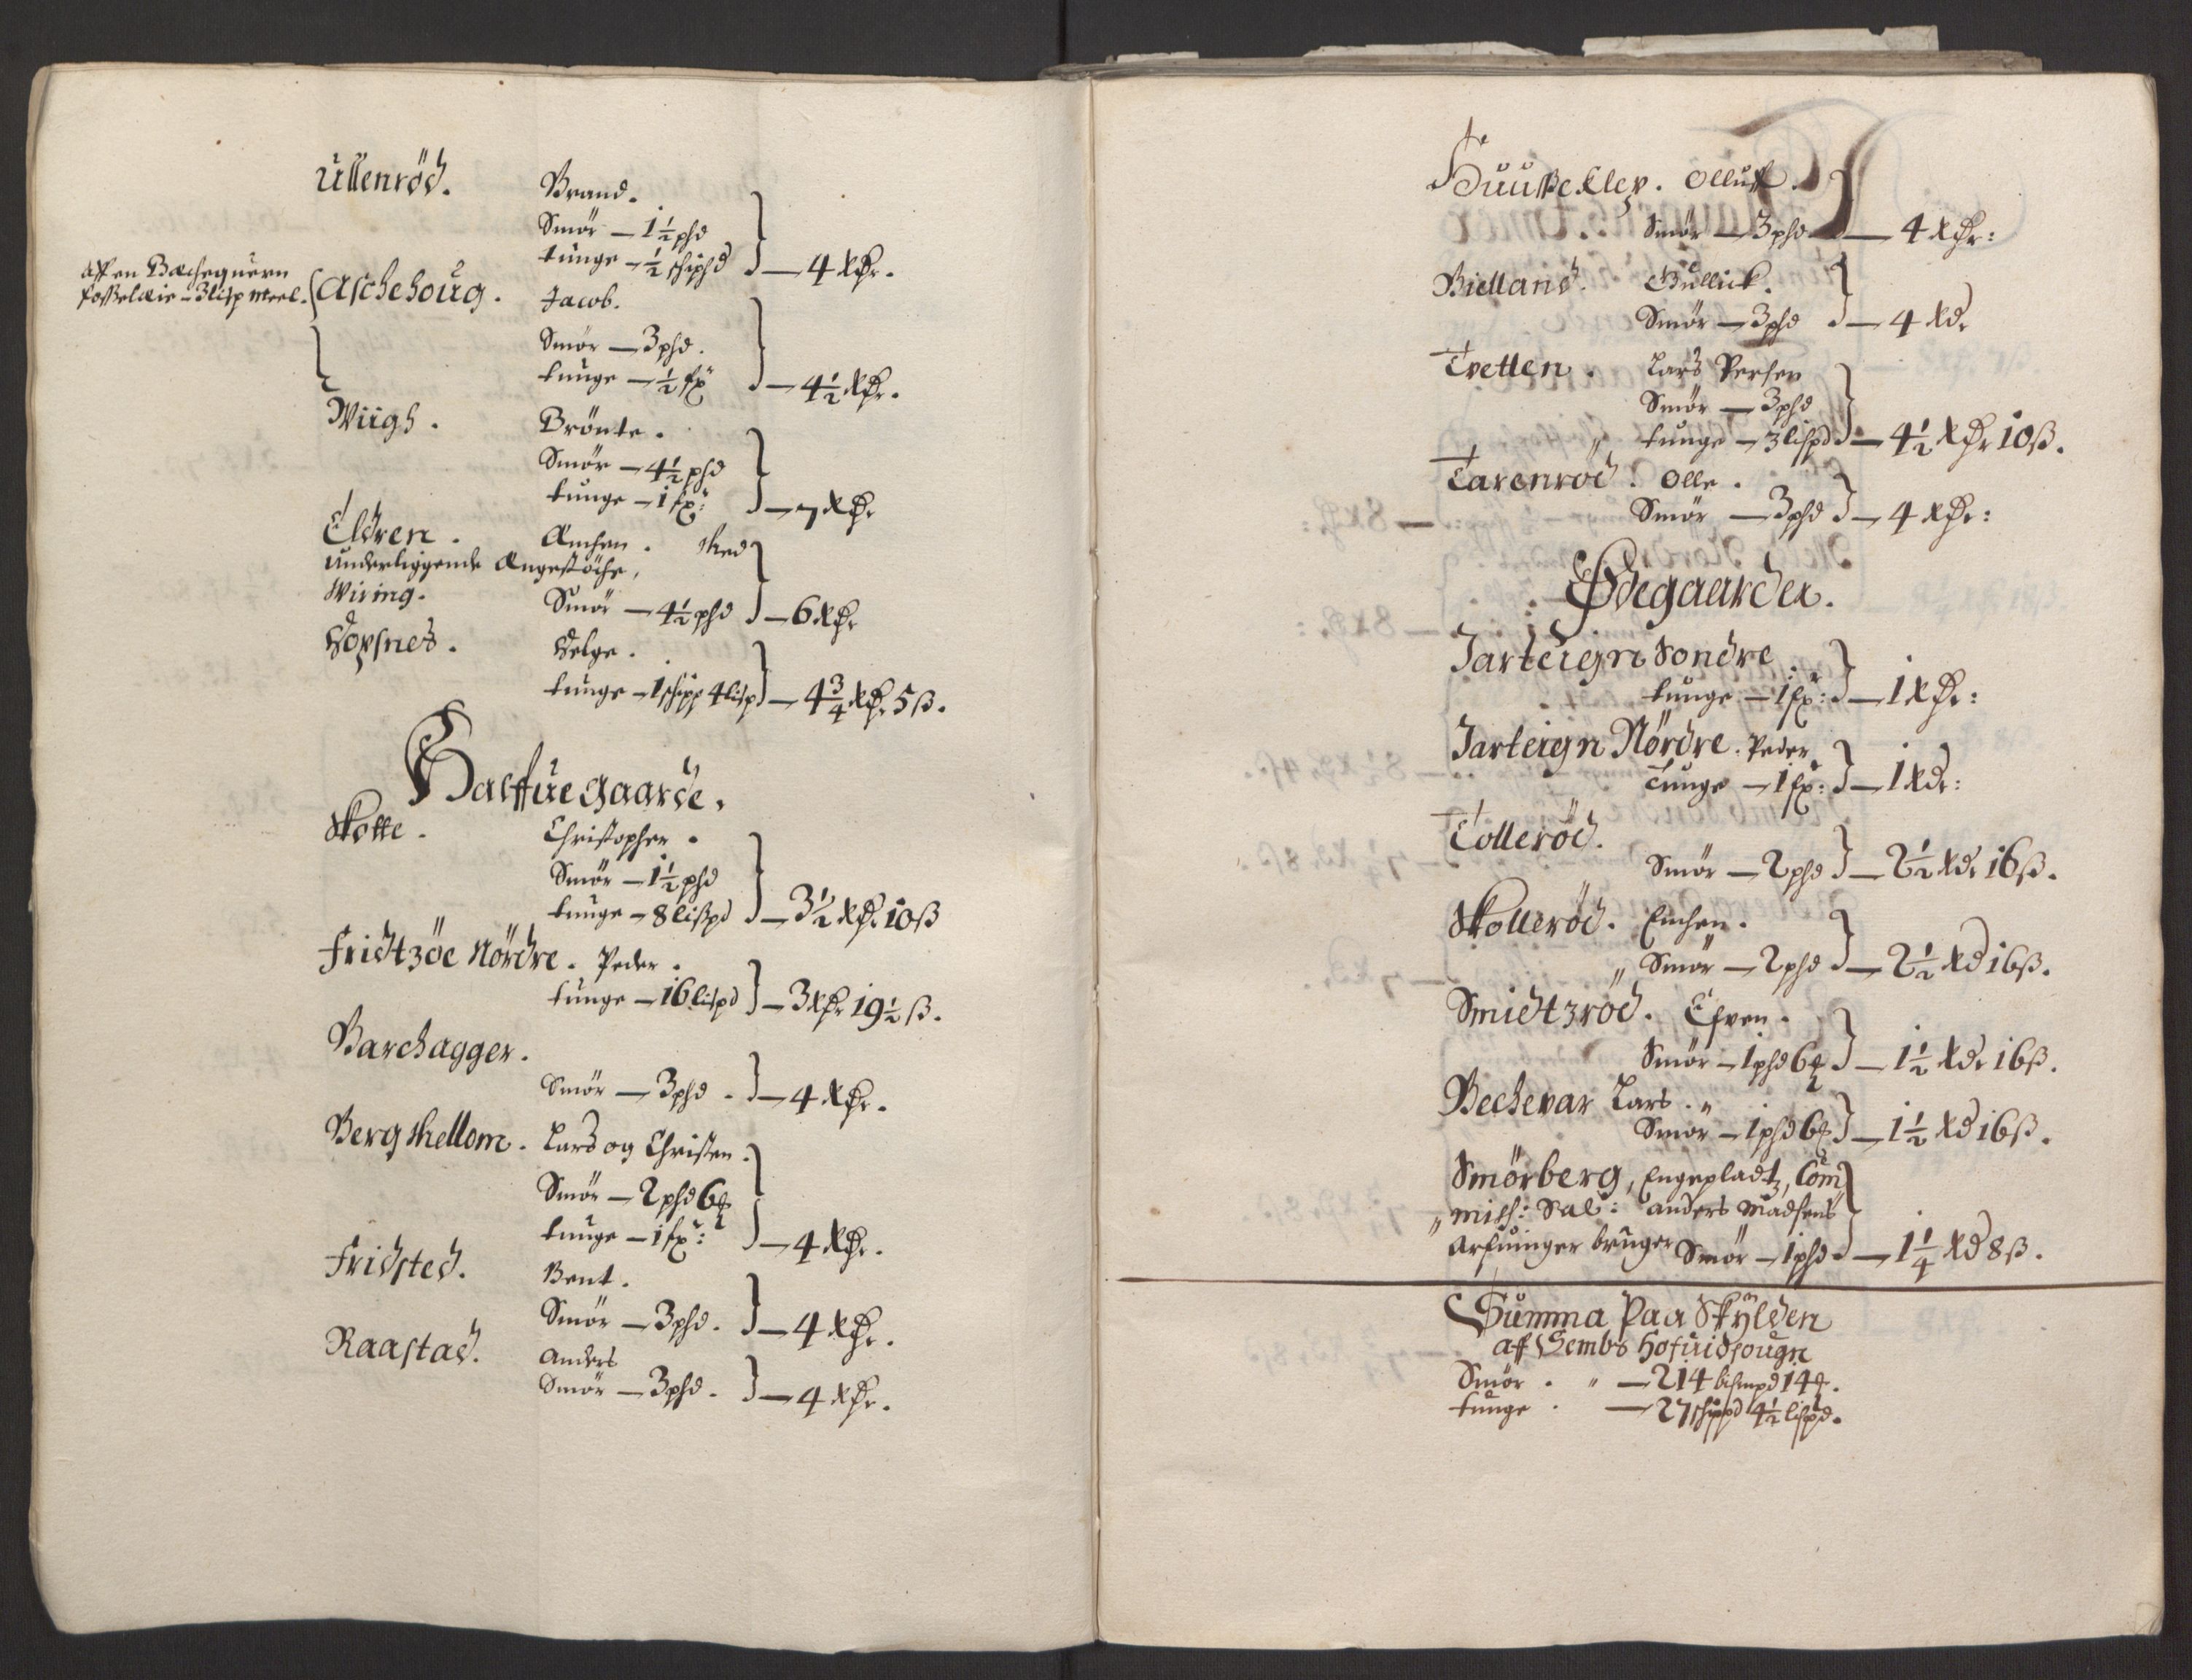 Ullenröd. Brand.
Smör — 1½ phd
tunge — ½ schiphd } — 4 Rdr.
Aff en Bechequern
fosseleie — 3 lisp meel. Aschehoug. Jacob.
Smör — 3 phd.
tunge — ½ sp } — 4½ Rdr.
Wiigh. Brönte.
Smör — 4½ phd
tunge — 1 sp: } — 7 Rdr
Eldren. Amhen. Med
underliggende Angestöche,
Wiring. Smör — 4½ phd } — 6 Rdr
Hopsnes. Helge.
tunge — 1 schipp 4 lisp } — 4¾ Rdr 5 ß.
Halffue gaarde.
Skotte. Christopher.
Smör — 1½ phd
tunge — 8 lispd } — 3½ Rdr 10 ß
Fridtzöe Nördre. Peder.
tunge — 16 lispd } — 3 Rdr 19½ ß.
Barchagger.
Smör — 3 phd. } — 4 Rdr.
Bergskellom. Lars og Christen.
Smör — 2 phd 6 ℔
tunge — 1 sp: } — 4 Rdr.
Fridsted. Bent.
Smör — 3 phd. } — 4 Rdr.
Raastad. Anders
Smör — 3 phd. } — 4 Rdr.
Huusseklep. Olluff.
Smör — 3 phd } — 4 Rdr:
Bielland. Gullick.
Smör — 3 phd } — 4 Rdr
Tvetten. Lars Persen
Smör — 3 phd
tunge — 3 lispd } — 4½ Rdr 10 ß.
Tarenröd. Olle.
Smör — 3 phd } — 4 Rdr:
Ødegaarder.
Jarteign Söndre.
tunge — 1 sp: } — 1 Rdr:
Jarteign Nördre. Peder
Tunge — 1 sp: } — 1 Rdr:
Tolleröd.
Smör — 2 phd } — 2½ Rdr 16 ß.
Skolleröd. Emhen.
Smör — 2 phd } — 2½ Rd 16 ß.
Smidtzröd. Efven.
Smör — 1 phd 6 ℔ } — 1½ Rdr 16 ß.
Bechevar Lars.
Smör — 1 phd 6 ℔ } — 1½ Rd 16 ß.
Smörberg, Engepladtz, Com
miss: Sal: Anders Madsens
Arfuinger bruger Smör — 1 phd } — 1¼ Rd 8 ß.
Summa Paa Skylden
aff Sembs Hofuidsougn
Smör. — 214 bismpd 14 ℔.
tunge. — 27 schippd 4½ lispd.